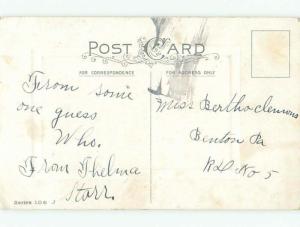 POST CARD
FOR CORRESPONDENCE
FOR ADDRESS ONLY
From some
one guess
Who.
From Thelma
Storr.
Miss Bertha Clemons
Benton Pa
RD. No 5
Series 106 J